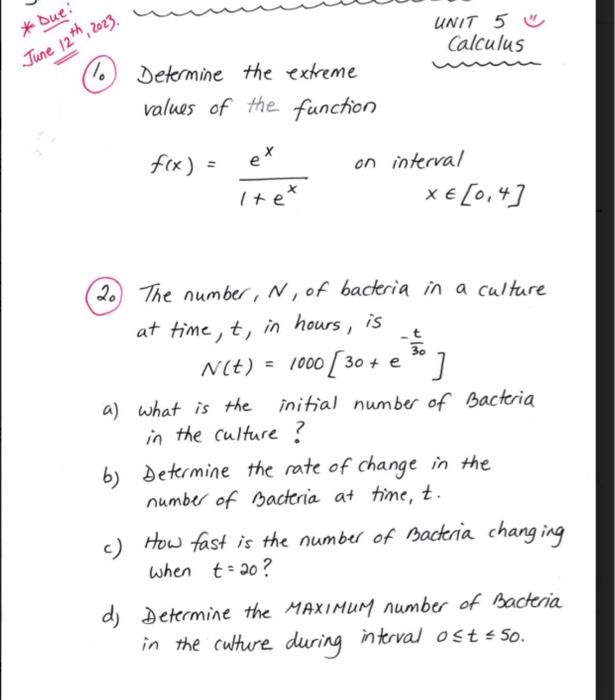 * Due:
June 12th, 2023.
UNIT 5
Calculus
1. Determine the extreme
values of the function
f(x) = e^x / (1 + e^x) on interval
x ∈ [0,4]
2. The number, N, of bacteria in a culture
at time, t, in hours, is
N(t) = 1000 [30 + e^(-t/30)]
a) what is the initial number of Bacteria
in the culture ?
b) Determine the rate of change in the
number of Bacteria at time, t.
c) How fast is the number of Bacteria changing
when t = 20?
d) Determine the MAXIMUM number of Bacteria
in the culture during interval 0 ≤ t ≤ 50.